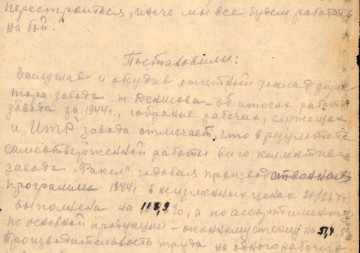 перестроиться, иначе мы все будем работать
на бой.
Постановили:
Заслушав и обсудив отчетный доклад дирек
тора завода т. Денисова об итогах работы
завода за 1944г., собрание рабочих, служащих
и ИТР завода отмечает, что в результате
самоотверженной работы всего коллектива
завода "Факел" годовая производственная
программа 1944г в неизменных ценах 26/27г.
выполнена на %, а по ассортименту
по основной продукции - на
Производительность труда на одного рабочего